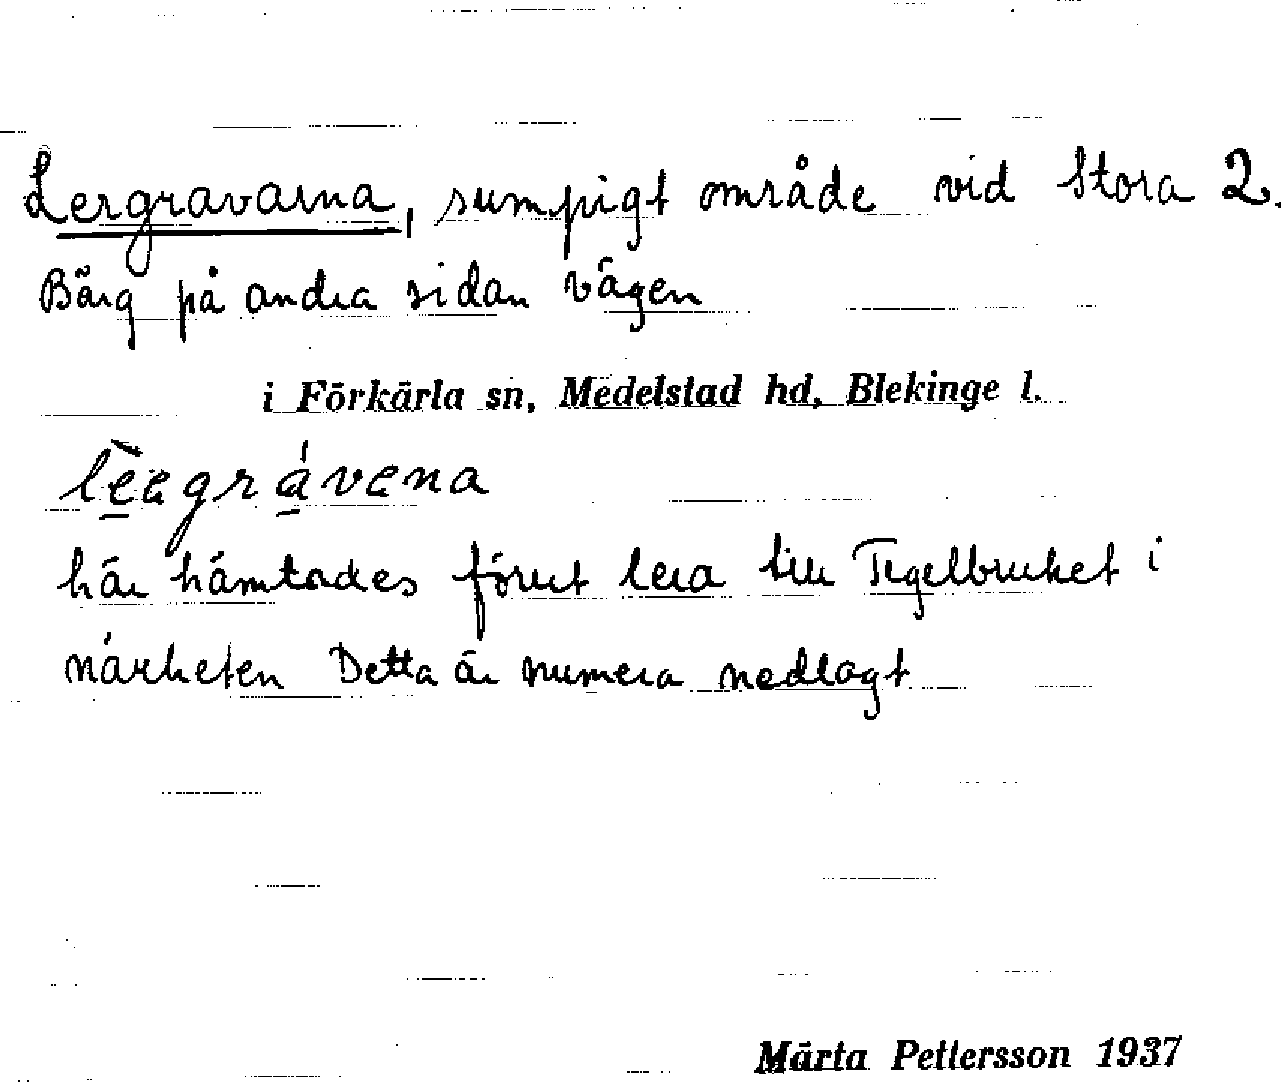 Lergravarna, sumpigt område vid Stora 2.
Bärg på andra sidan vägen
i Förkärla sn, Medelstad hd, Blekinge l.
lèeagrávena
här hämtades förut lera till Tegelbruket i
närheten Detta är numera nedlagt
Märta Pettersson 1937